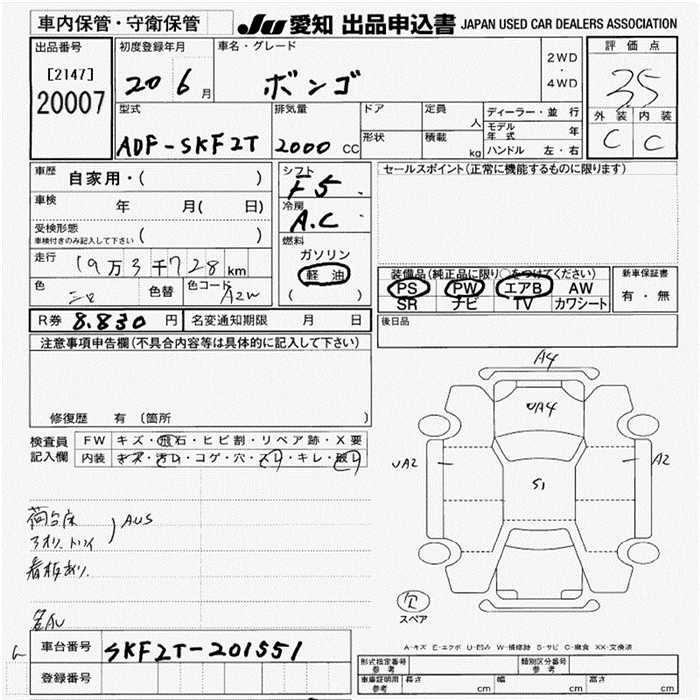 車内保管・守衛保管 JU 愛知 出品申込書 JAPAN USED CAR DEALERS ASSOCIATION
出品番号
[2147]
20007
初度登録年月
20 6 月
車名・グレード
ボンゴ
2WD
・
4WD
評価点
3.5
外装 内装
C C
型式
ADF-SKF2T
排気量
2000 CC
ドア
形状
定員
人
積載
kg
ディーラー・並 行
モデル年式 年
ハンドル 左・右
車歴
自家用・( )
車検 年 月( 日)
受検形態
車検付きのみ記入して下さい ( )
走行 19万3千728km
色
色替
色コード A2W
シフト
F5
冷房
A.C
燃料
ガソリン
軽 油
( )
セールスポイント(正常に機能するものに限ります)
装備品(純正品に限り○をつけてください)
PS PW エアB AW
SR ナビ TV カワシート
新車保証書
有・無
R券 8.830 円 名変通知期限 月 日
後日品
注意事項申告欄(不具合内容等は具体的に記入して下さい)
修復歴 有 (箇所
検査員
記入欄
FW キズ・飛石・ヒビ割・リペア跡・X要
内装 キズ・汚レ・コゲ・穴・スレ・キレ・破レ
荷台床
アオリ、トリイ
AUS
看板あり.
A4
UA4
UA2
A2
S1
スペア
A-キズ E-エクボ U-凹み W-補修跡 S-サビ C-腐食 XX-交換済
車台番号 SKF2T-201551
登録番号
形式指定番号
参考
類別区分番号
参考
車庫証明用
参考
長さ cm 幅 cm 高さ cm